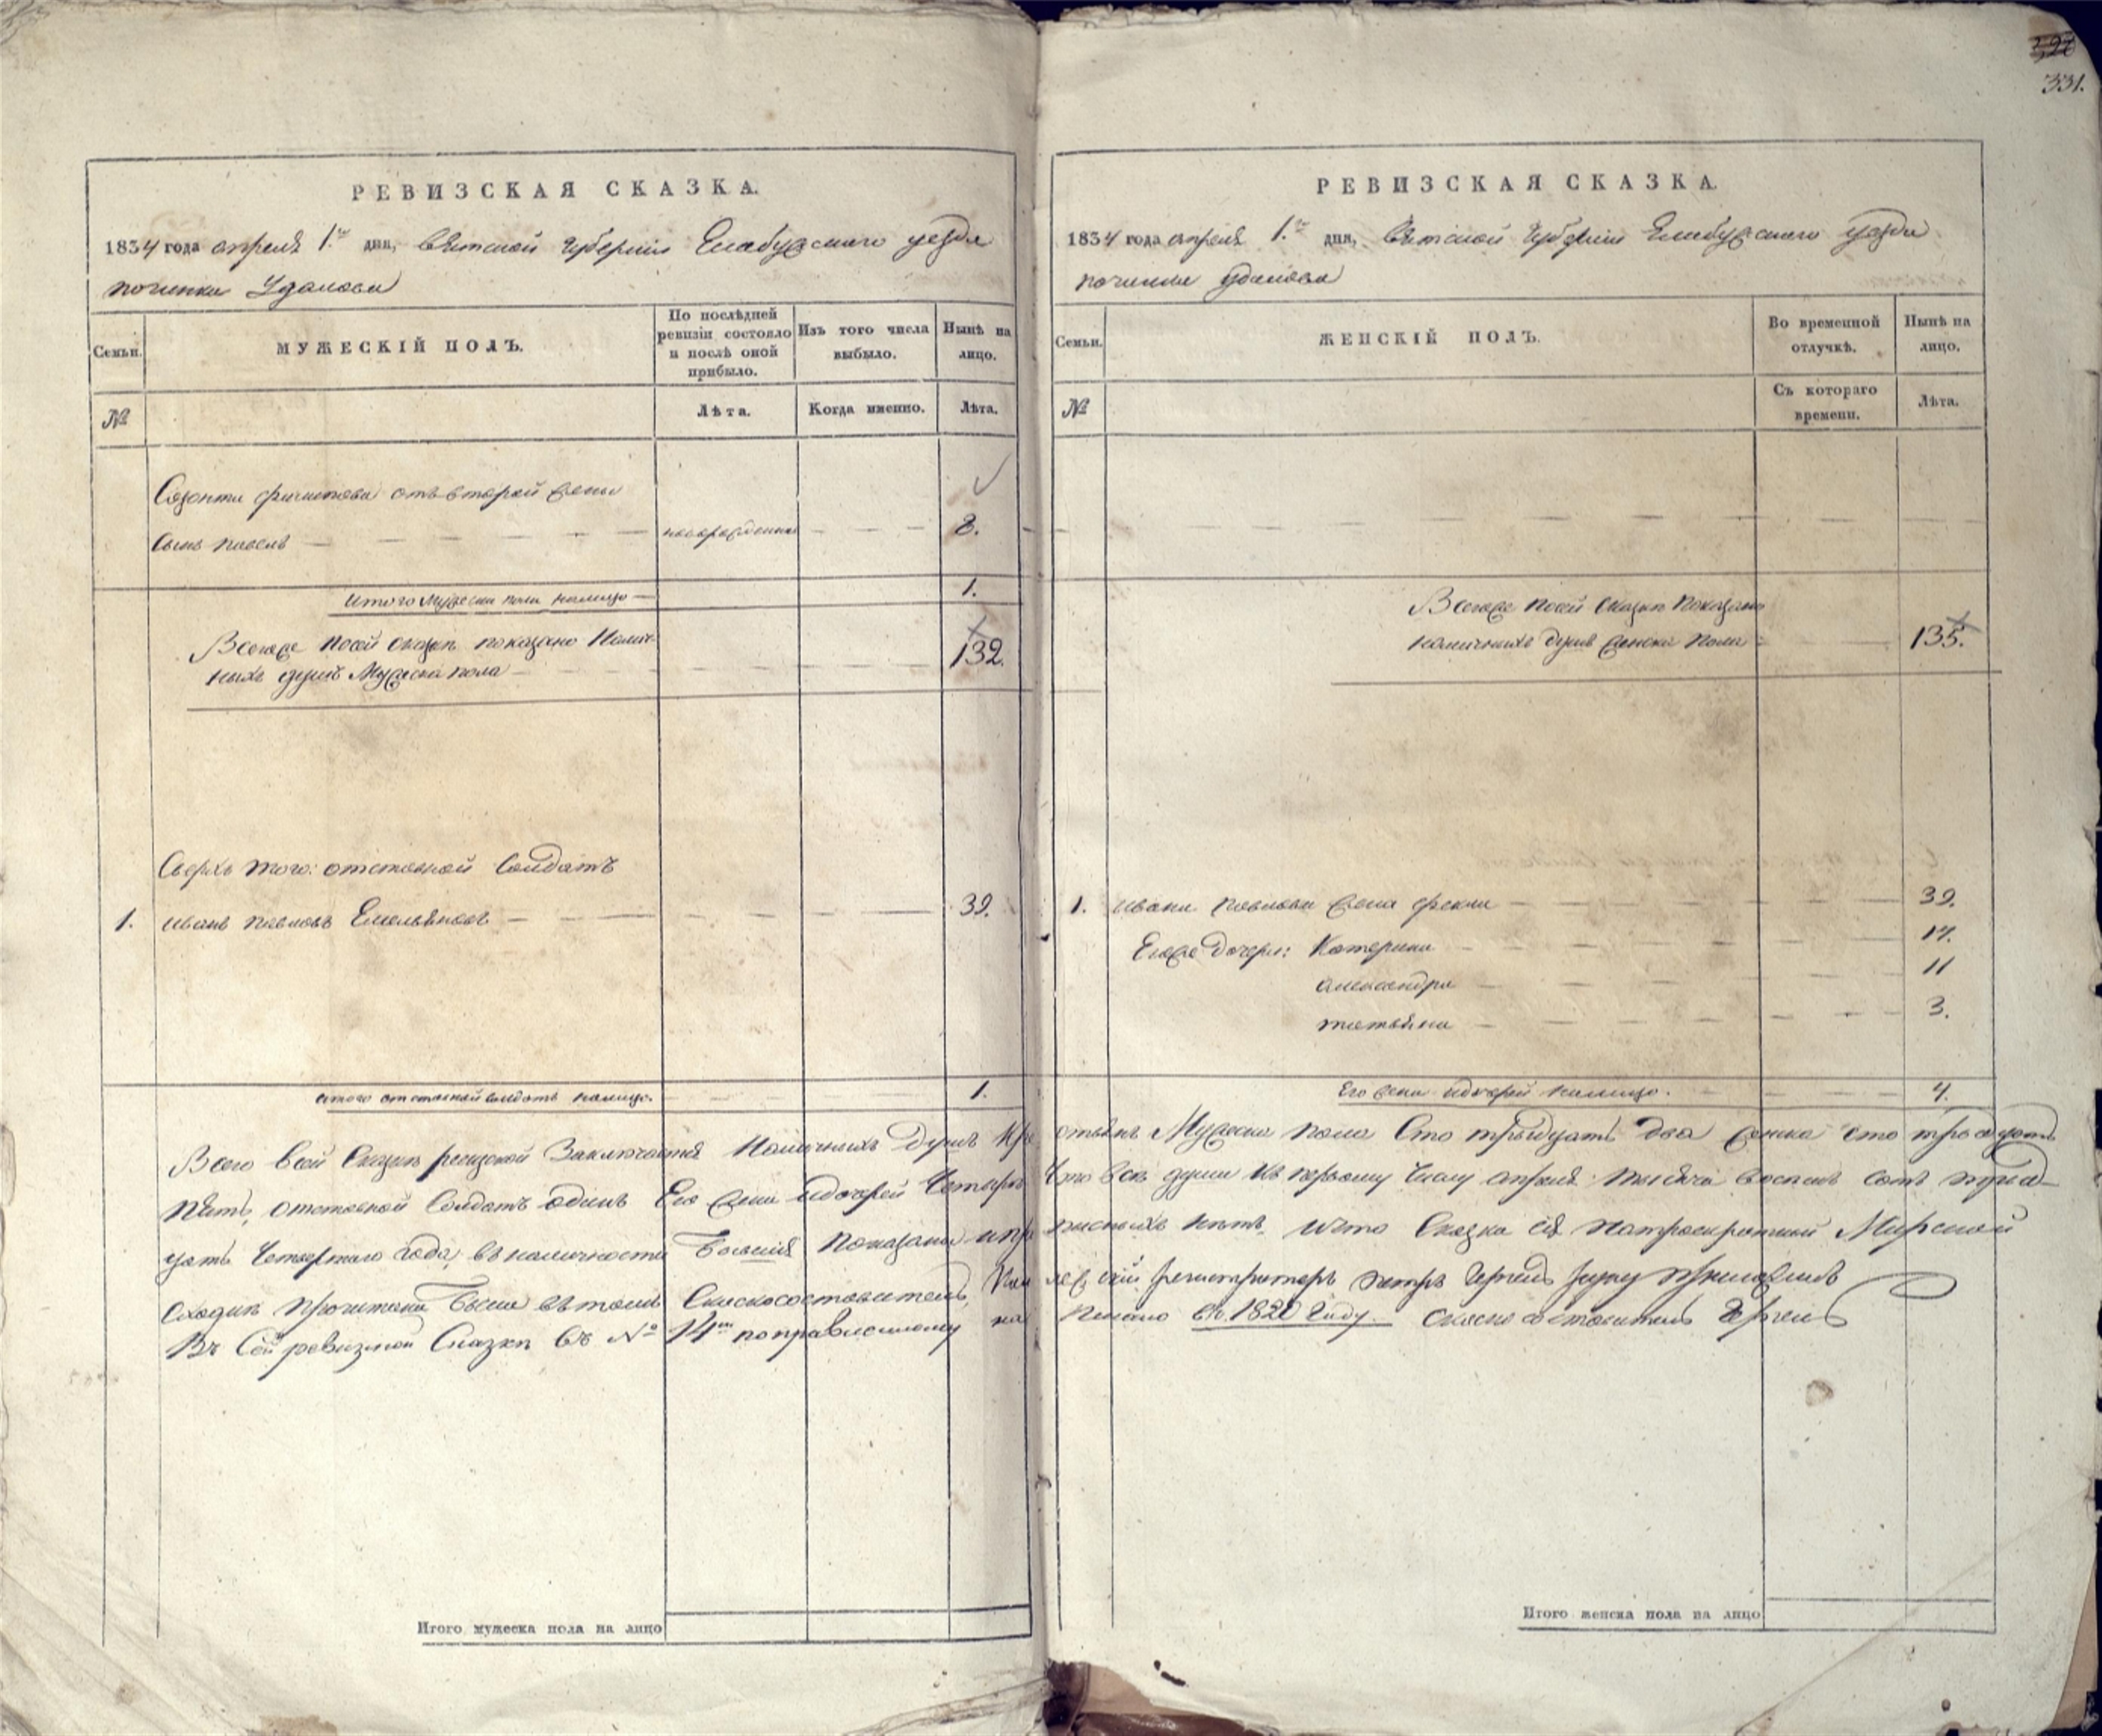 331.
РЕВИЗСКАЯ СКАЗКА.
1834 года апреля 1.го дня, Вятской Губернiи Елабужскаго уезда
починка Удалова
Семьи.
МУЖЕСКІЙ ПОЛЪ.
По послѣдней ревизіи состояло и послѣ оной прибыло.
Изъ того числа выбыло.
Нынѣ на лицо.
№
Лѣта.
Когда именно.
Лѣта.
Созонта Филипова отъ второй жены
сынъ Павелъ
новорожденной
8.
Итого Мужеска пола налицо
1.
Всегоже посей сказкѣ показано Налич-
ныхъ душъ Мужеска пола
132.
Сверхъ того: отставной Солдатъ
1. Иванъ Павловъ Емельяновъ
39.
итого отставной солдатъ налицо.
1.
РЕВИЗСКАЯ СКАЗКА.
1834 года апреля 1.го дня, Вятской Губернiи Елабужскаго уезда
починка Удалова
Семьи.
ЖЕНСКІЙ ПОЛЪ.
Во временной отлучкѣ.
Нынѣ на лицо.
№
Съ котораго времени.
Лѣта.
Всегоже посей сказкѣ показано
наличныхъ душъ женска пола
135.
1. Ивана Павлова жена Фекла
39.
Егоже дочери: Катерина
17.
Александра
11
татьяна
3.
Его жена идочерей налицо.
4.
Всего всей Сказкѣ ревизской Заключается Наличныхъ Душъ Кре стьянъ Мужеска пола Сто тридцать два женска сто тридцать
пять, отставной Солдатъ одинъ Его жена идочерей Четыре Что всѣ души Къ первому Числу апреля тысяча восемь сотъ трид-
цать Четвертаго года, въ наличности показаны ипро писныхъ нѣтъ, ичто Сказка сiя Мирской
сходкѣ прочитана была втомъ Скаскосоставитель, Кол леж скiй регистраторъ петръ руку приложилъ
Въ Сей ревизской Сказкѣ въ № 14м поправленному на писано въ 1820 Году. Скаско составитель
Итого мужеска пола на лицо
Итого женска пола на лицо